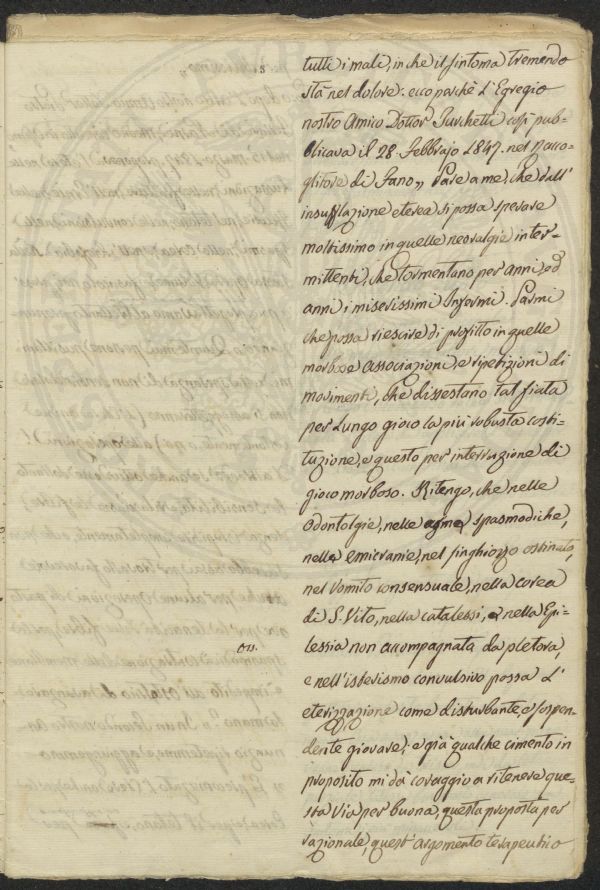 tutti i mali, in che il sintoma tremendo
stà nel dolore: ecco perchè l'Egregio
nostro Amico Dottor
così pub-
blicava il 28. Febbrajo 1847. nel Racco-
glitore di Fano „ Pare a me, che dall'
insufflazione eterea si possa sperare
moltissimo in quelle nevralgie inter-
mittenti, che tormentano per anni, ed
anni i miserissimi Infermi. Parmi
che possa riescire di profitto in quelle
morbose associazioni, e ripetizioni di
movimenti, che dissestano tal fiata
per lungo gioco la più robusta costi-
tuzione, e questo per interruzione di
gioco morboso. Ritengo, che nelle
Odontolgie, nelle asme spasmodiche,
nelle emicranie, nel singhiozzo ostinato,
nel vomito consensuale, nella corea
di S. Vito, nella catalessi, nella Epi-
lessia non accompagnata da pletora,
e nell'isterismo convulsivo possa l'
eterizzazione come disturbante, e sospen-
dente giovare; e già qualche cimento in
proposito mi dà coraggio a ritenere que-
sta via per buona, questa proposta per
razionale, quest'argomento terapeutico